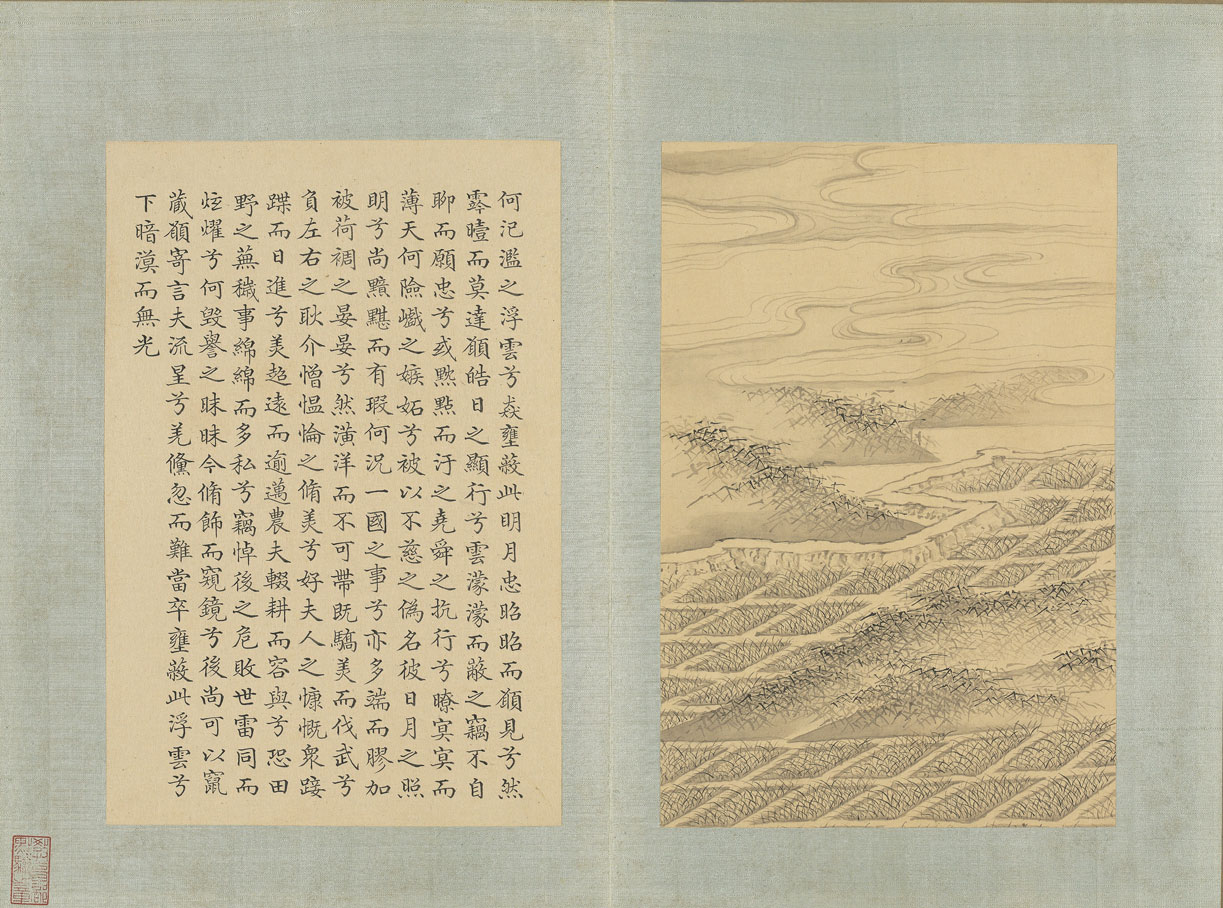 何氾濫之浮雲兮猋壅蔽此明月忠昭昭而願見兮然
霠曀而莫達願皓日之顯行兮雲濛濛而蔽之竊不自
聊而願忠兮或黕點而汙之堯舜之抗行兮瞭冥冥而
薄天何險巇之嫉妬兮被以不慈之偽名彼日月之照
明兮尚黯黮而有瑕何況一國之事兮亦多端而膠加
被荷裯之晏晏兮然潢洋而不可帶既驕美而伐武兮
負左右之耿介憎慍惀之脩美兮好夫人之慷慨衆踥
蹀而日進兮美超遠而逾邁農夫輟耕而容與兮恐田
野之蕪穢事綿綿而多私兮竊悼後之危敗世雷同而
炫燿兮何毀譽之昧昧今脩飾而窺鏡兮後尚可以竄
藏願寄言夫流星兮羌儵忽而難當卒壅蔽此浮雲兮
下暗漠而無光